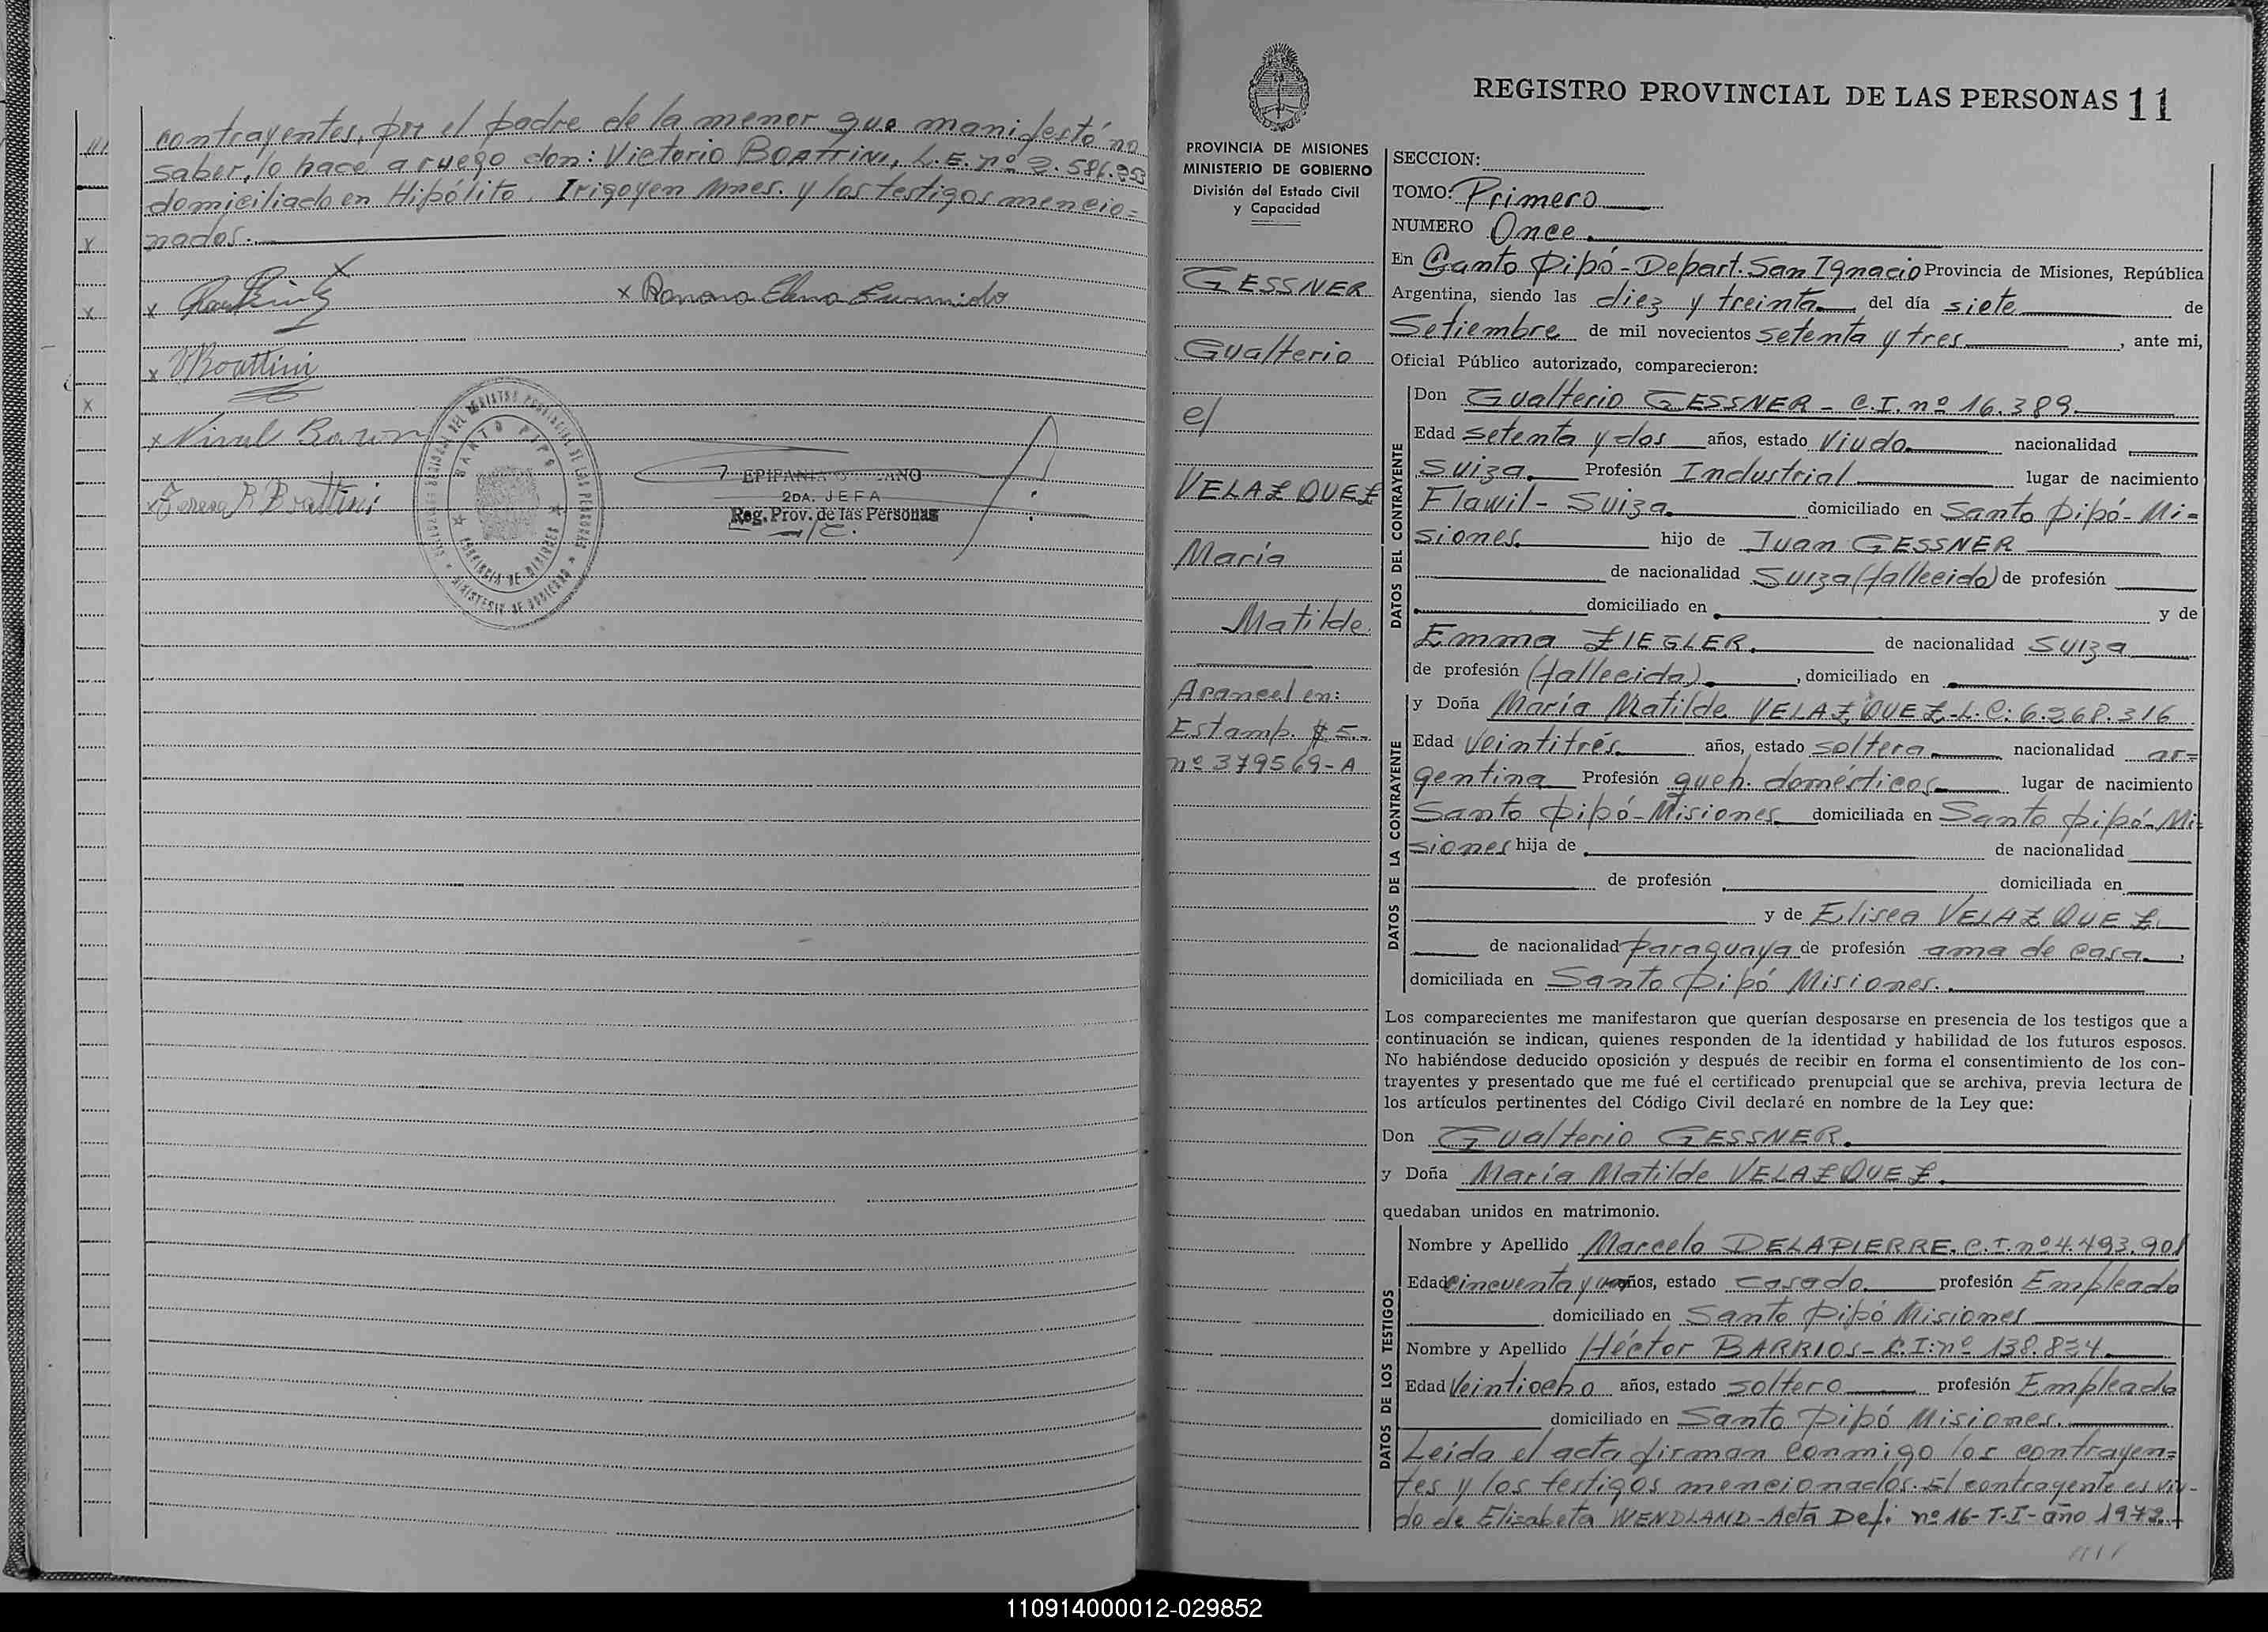 contrayentes, por el padre de la menor que manifestó no
saber, lo hace a ruego don: Victorio BOATTINI, L.E. nº 2.586.
domiciliado en Hipólito Irigoyen Mnes. y los testigos mencio=
nados.
x
x
x Ramona Elena
x VBoattini
x
x Teresa R Boattini
SANTO PIPO
PROVINCIA DE MISIONES
MINISTERIO DE GOBIERNO
EPIFANIA
2DA. JEFA
Reg. Prov. de las Personas
REGISTRO PROVINCIAL DE LAS PERSONAS 11
PROVINCIA DE MISIONES
MINISTERIO DE GOBIERNO
División del Estado Civil
y Capacidad
GESSNER
Gualterio
c/
VELAZQUEZ
María
Matilde
Arancel en:
Estamp. $ 5.-
nº 379569-A
SECCION:
TOMO: Primero
NUMERO Once.
En Santo Pipó - Depart. San Ignacio Provincia de Misiones, República
Argentina, siendo las diez y treinta del día siete de
Setiembre de mil novecientos setenta y tres, ante mi,
Oficial Público autorizado, comparecieron:
DATOS DEL CONTRAYENTE
Don Gualterio GESSNER - C.I. nº 16.389.
Edad setenta y dos años, estado viudo. nacionalidad
Suiza. Profesión Industrial lugar de nacimiento
Flawil - Suiza. domiciliado en Santo Pipó - Mi=
siones. hijo de Juan GESSNER
de nacionalidad Suiza (fallecido) de profesión
domiciliado en y de
Emma ZIEGLER. de nacionalidad Suiza
de profesión (fallecida)., domiciliado en
DATOS DE LA CONTRAYENTE
y Doña María Matilde VELAZQUEZ - L.C: 6.268.316
Edad Veintitrés años, estado soltera. nacionalidad ar=
gentina Profesión queh. domésticos lugar de nacimiento
Santo Pipó - Misiones domiciliada en Santo Pipó - Mi=
siones hija de de nacionalidad
de profesión domiciliada en
y de Elisea VELAZQUEZ
de nacionalidad paraguaya de profesión ama de casa.,
domiciliada en Santo Pipó Misiones.
Los comparecientes me manifestaron que querían desposarse en presencia de los testigos que a
continuación se indican, quienes responden de la identidad y habilidad de los futuros esposos.
No habiéndose deducido oposición y después de recibir en forma el consentimiento de los con-
trayentes y presentado que me fué el certificado prenupcial que se archiva, previa lectura de
los artículos pertinentes del Código Civil declaré en nombre de la Ley que:
Don Gualterio GESSNER.
y Doña María Matilde VELAZQUEZ.
quedaban unidos en matrimonio.
DATOS DE LOS TESTIGOS
Nombre y Apellido Marcelo DELAPIERRE. C.I. nº 4.493.901
Edad cincuenta y un años, estado casado. profesión Empleado
domiciliado en Santo Pipó Misiones
Nombre y Apellido Héctor BARRIOS - C.I: nº 138.834.
Edad Veintiocho años, estado soltero profesión Empleado
domiciliado en Santo Pipó Misiones.
Leida el acta firman conmigo los contrayen=
tes y los testigos mencionados. El contrayente es viu-
do de Elisabeta WENDLAND - Acta Def. nº 16 - T-I - año 1972.
110914000012-029852